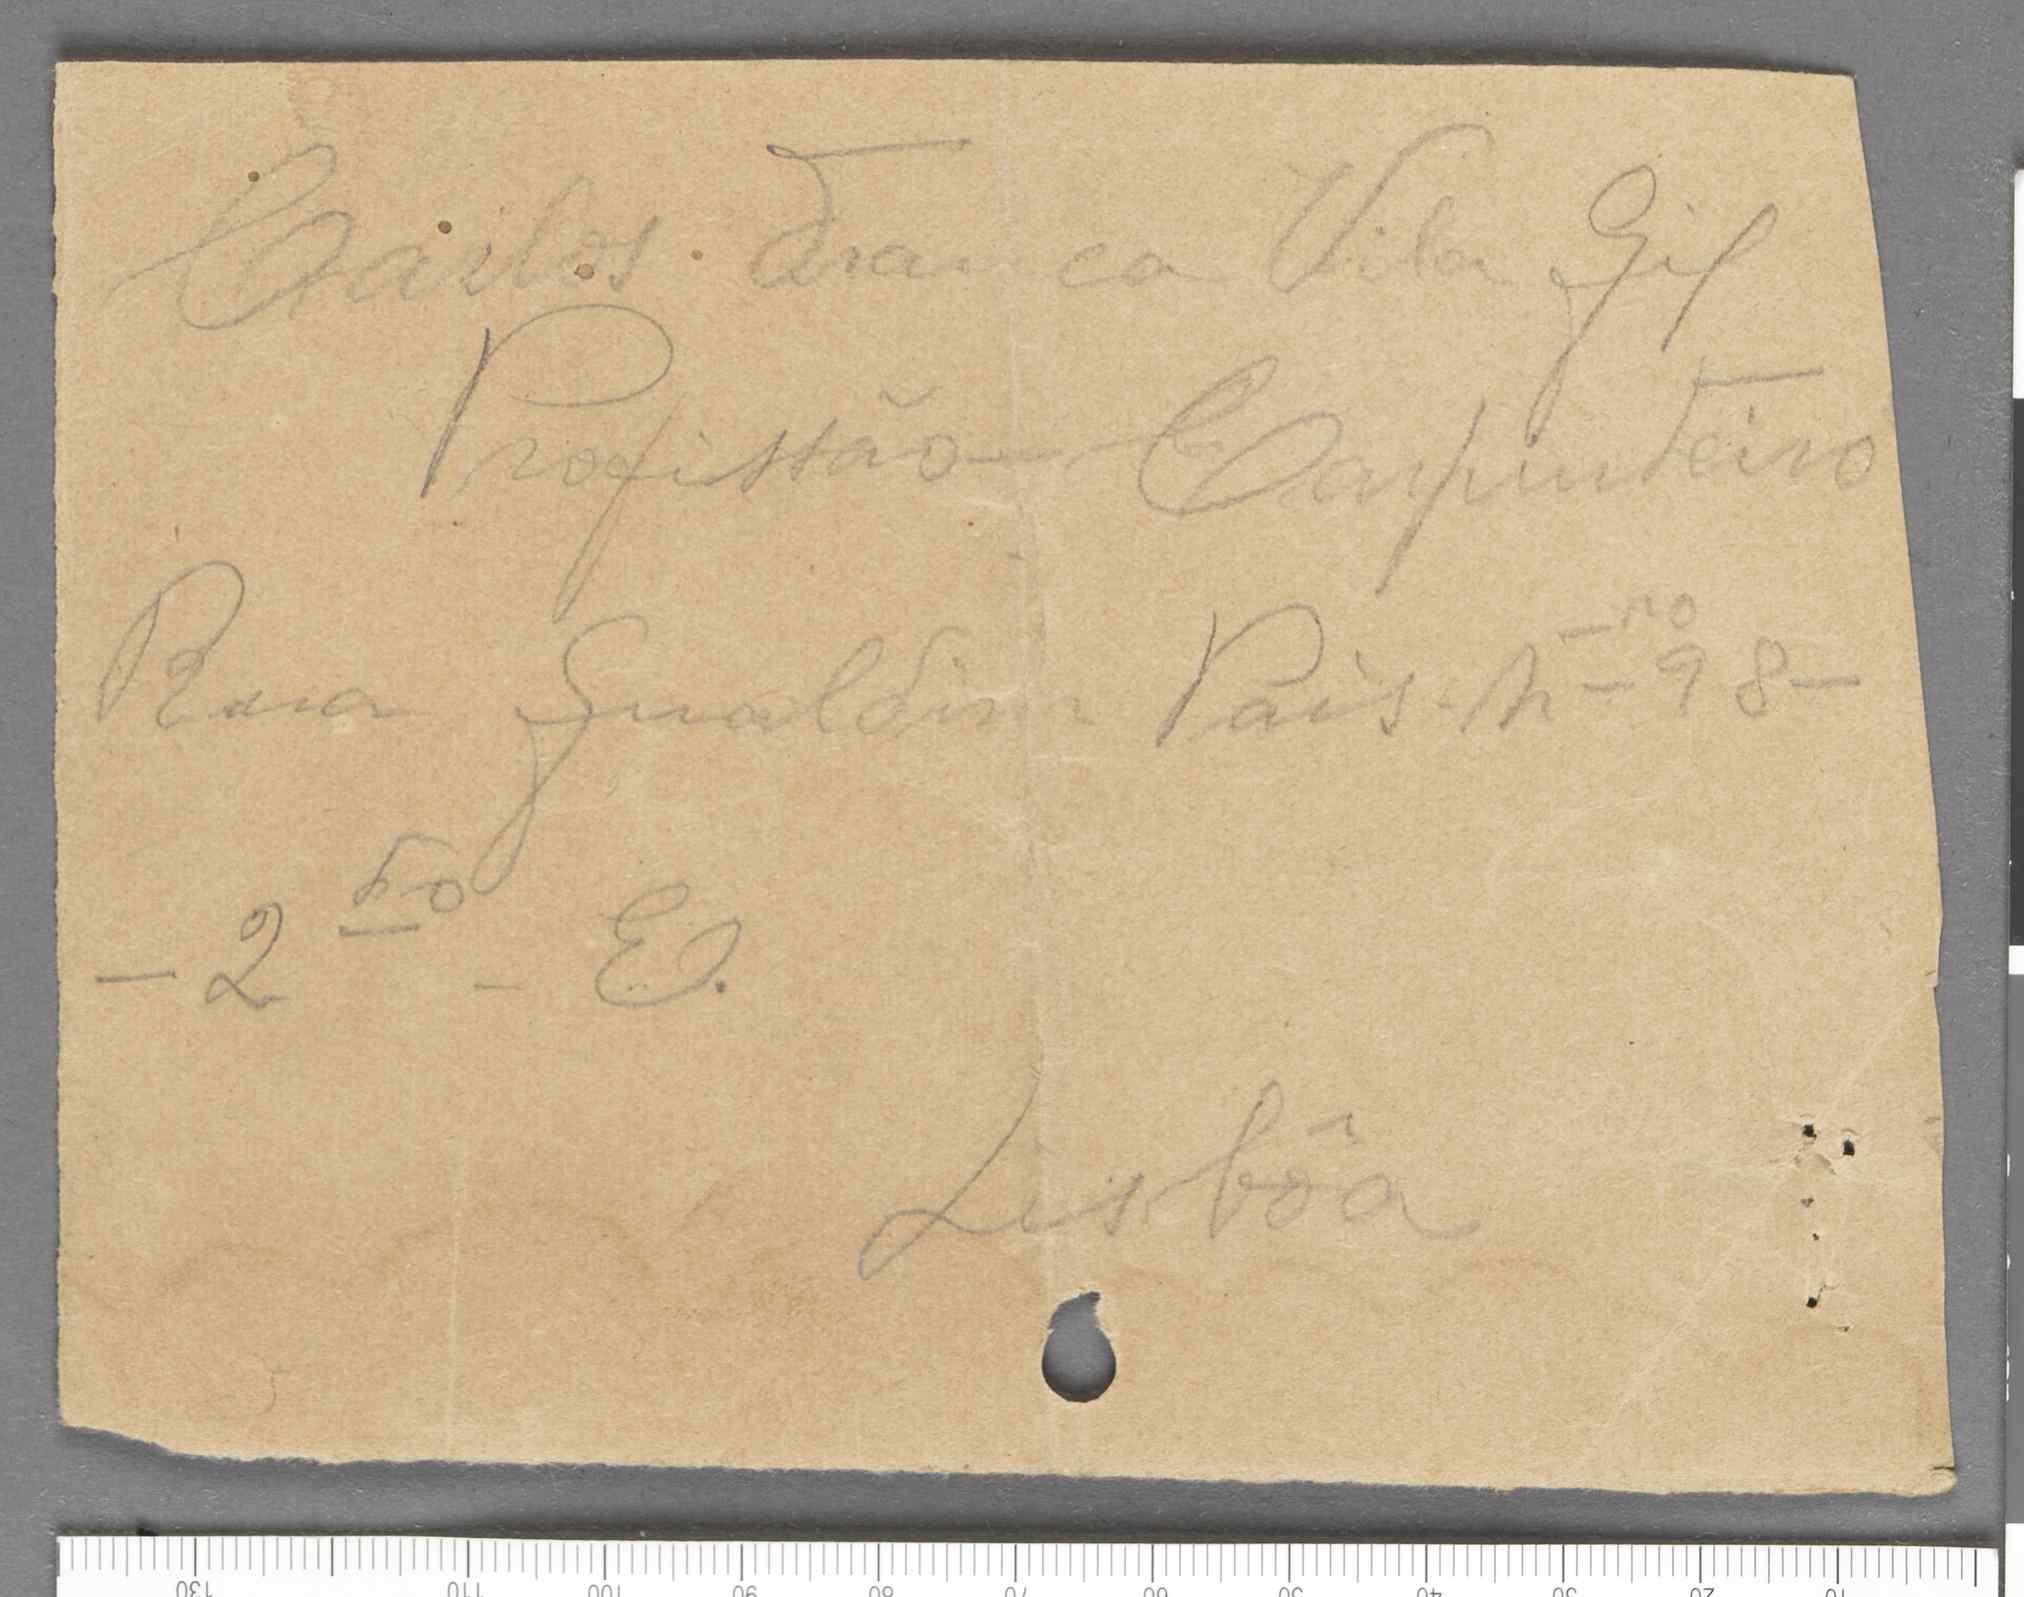 Carlos França Vila Gil
Profissão - Carpinteiro
Rua Gualdim Pais. N - ro 98 -
- 2 do - E.
Lisbôa
130 110 100 90 80 70 60 50 40 30 20 10